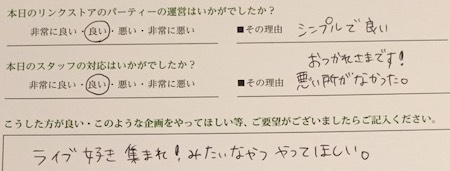 本日のリンクストアのパーティーの運営はいかがでしたか？
非常に良い・良い・悪い・非常に悪い ■その理由 シンプルで良い
おつかれさまです！
本日のスタッフの対応はいかがでしたか？
非常に良い・良い・悪い・非常に悪い ■その理由 悪い所がなかった。
こうした方が良い・このような企画をやってほしい等、ご要望がございましたらご記入ください。
ライブ好き集まれ！みたいなやつ やってほしい。